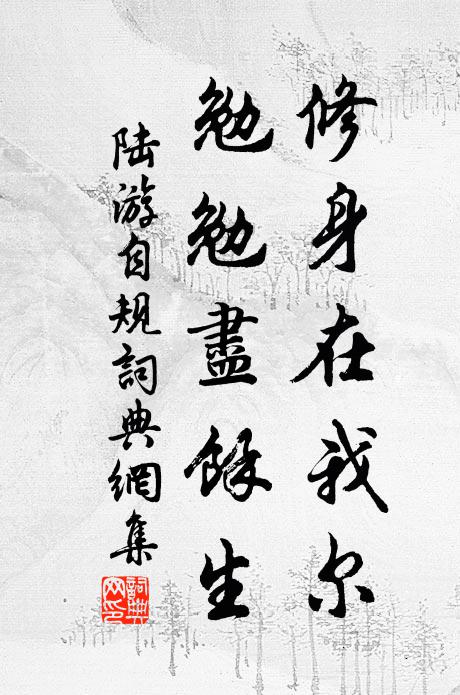 修身在我尔
勉勉盡餘生
陆游自规詞典網集
詞典网印